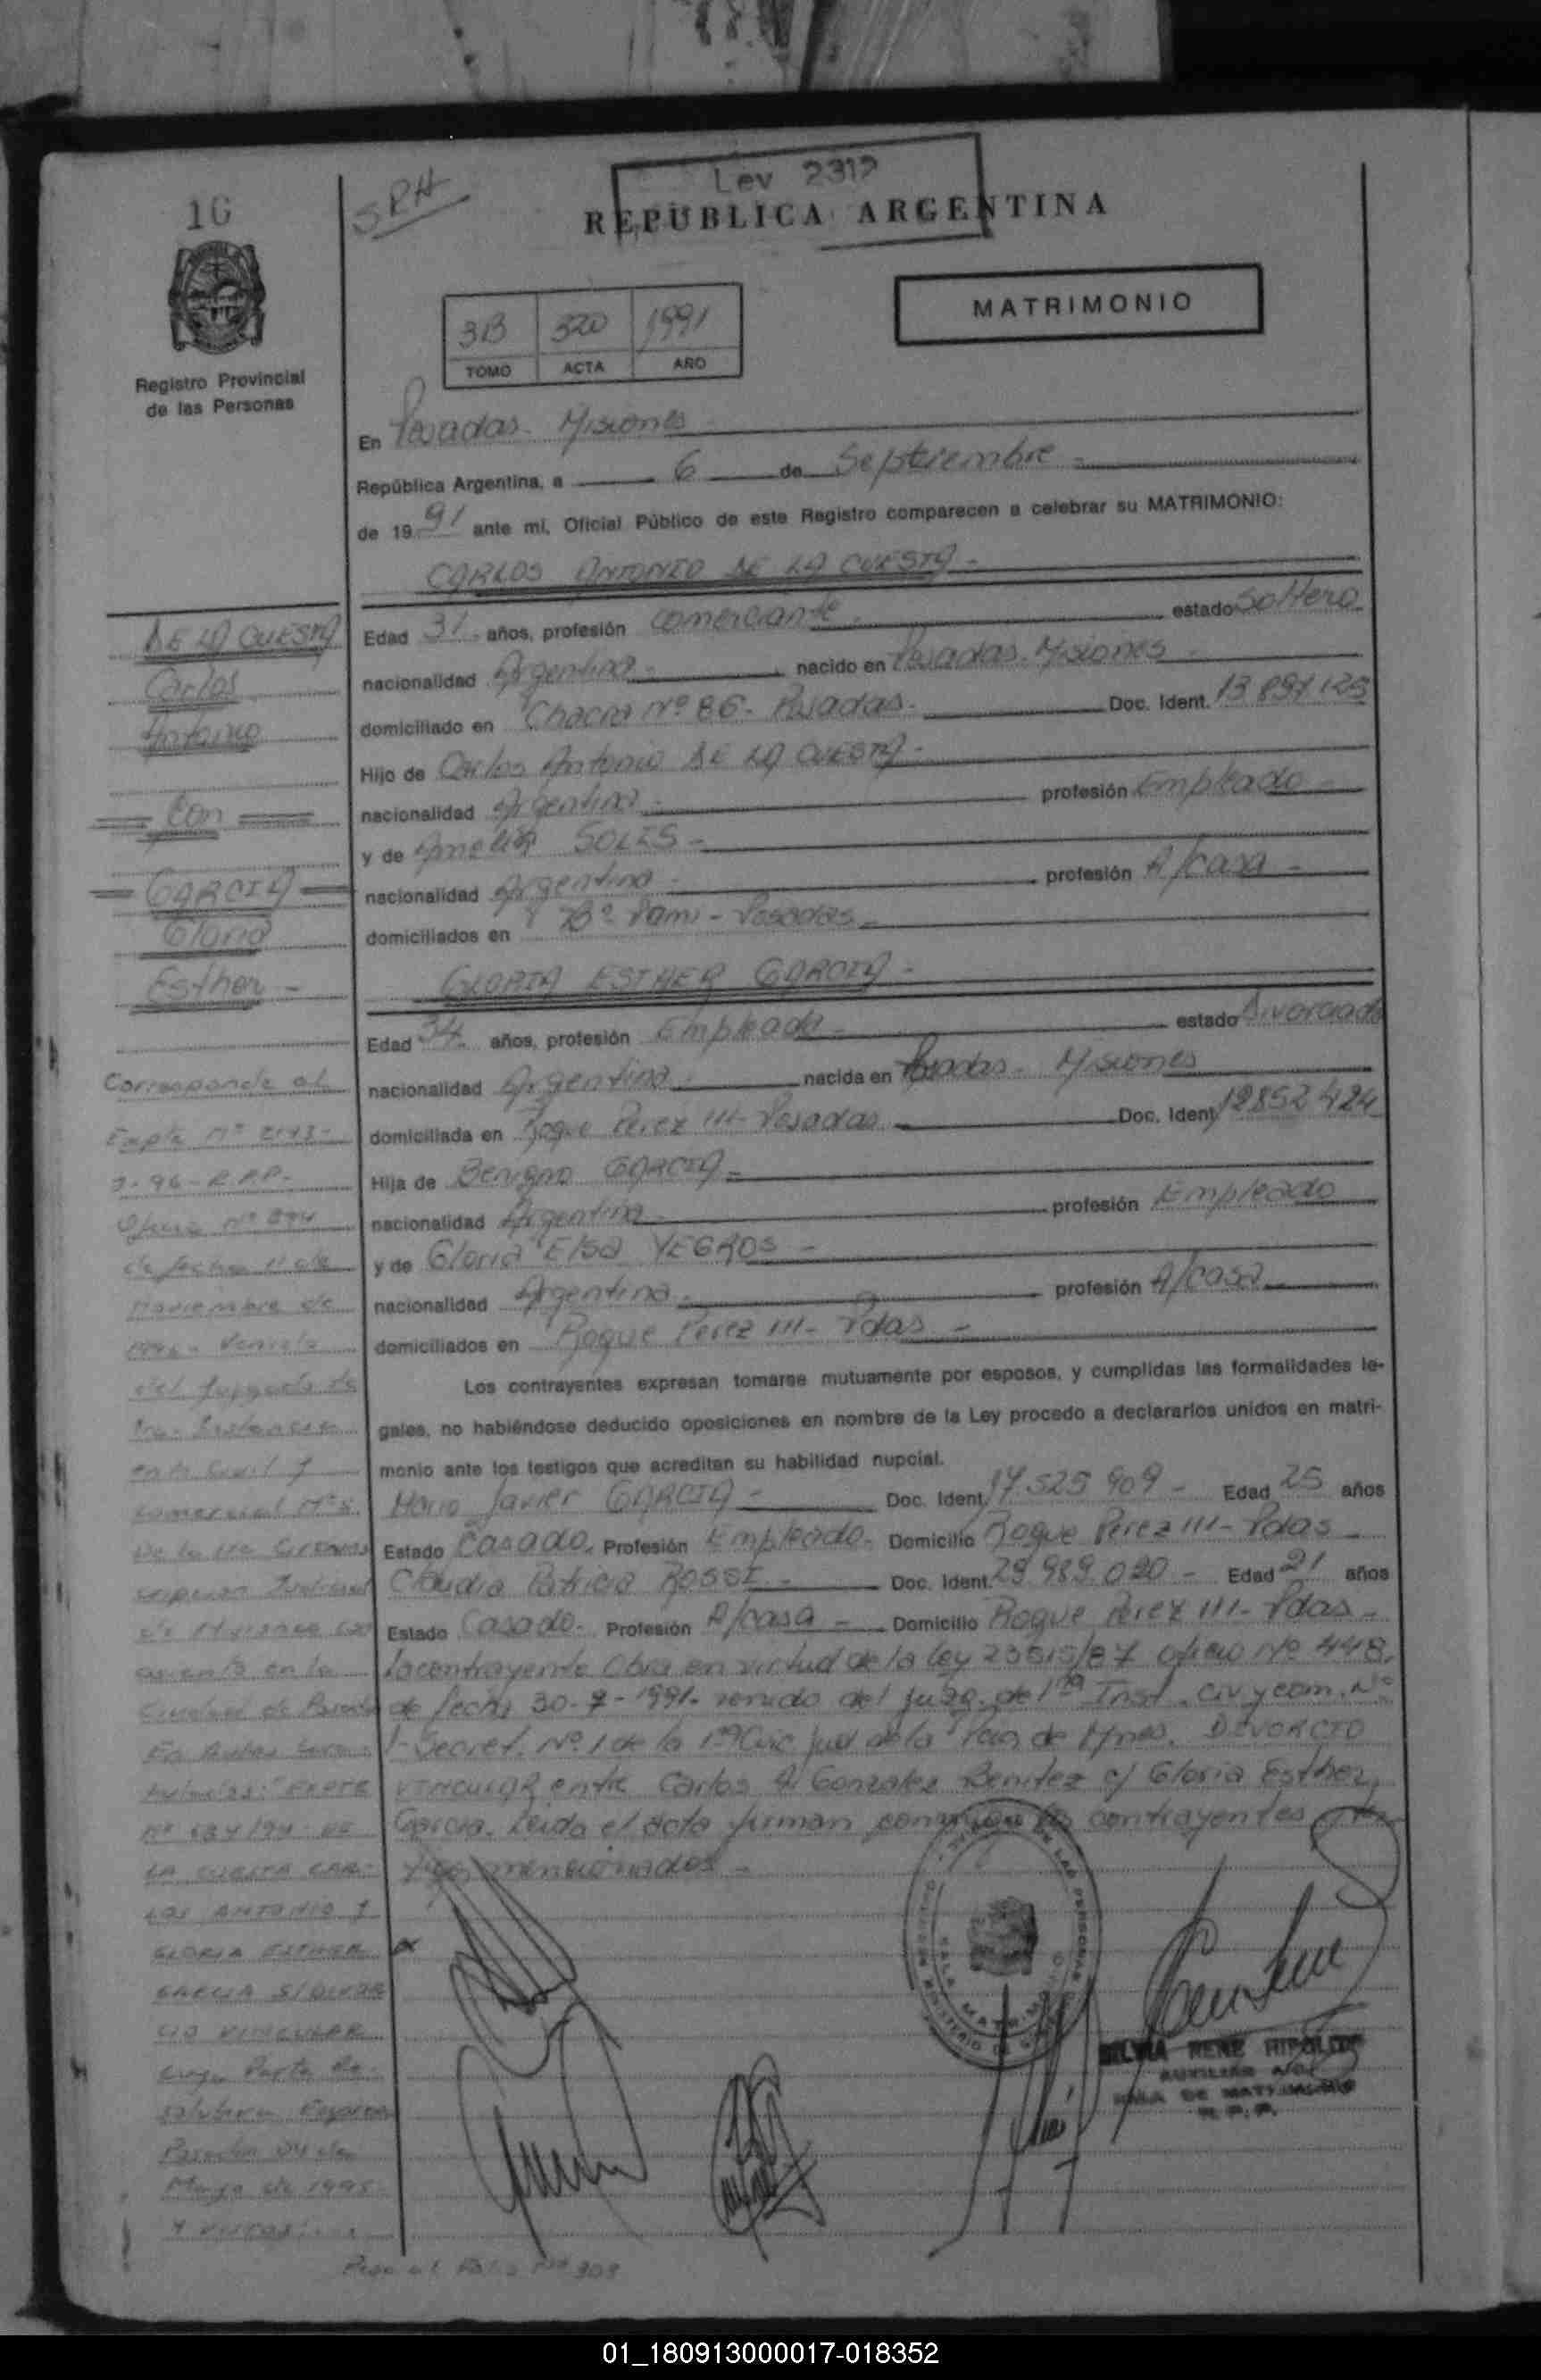 Ley 2312
16
SRH
REPUBLICA ARGENTINA
MATRIMONIO
3B 320 1991
TOMO ACTA AÑO
Registro Provincial
de las Personas
En Posadas - Misiones
República Argentina, a 6 de Septiembre -
de 1991 ante mí, Oficial Público de este Registro comparecen a celebrar su MATRIMONIO:
CARLOS ANTONIO DE LA CUESTA -
Edad 31 - años, profesión comerciante - estado Soltero
nacionalidad Argentina - nacido en Posadas - Misiones -
domiciliado en Chacra Nº 86 - Posadas - Doc. Ident.
Hijo de Carlos Antonio DE LA CUESTA -
nacionalidad Argentina - profesión Empleado -
y de Amelia SOLIS -
nacionalidad Argentina - profesión A/casa -
domiciliados en Bº Pami - Posadas -
GLORIA ESTHER GARCIA -
Edad 34 - años, profesión Empleada - estado Divorciada
nacionalidad Argentina - nacida en Posadas - Misiones
domiciliada en Roque Perez 111 - Posadas Doc. Ident. 12852424
Hija de Benigno GARCIA -
nacionalidad Argentina - profesión Empleado
y de Gloria Elsa YEGROS -
nacionalidad Argentina - profesión A/casa
domiciliados en Roque Perez 111 - Pdas -
Los contrayentes expresan tomarse mutuamente por esposos, y cumplidas las formalidades le-
gales, no habiéndose deducido oposiciones en nombre de la Ley procedo a declararlos unidos en matri-
monio ante los testigos que acreditan su habilidad nupcial.
Mario Javier GARCIA - Doc. Ident. 17.525.909 - Edad 25 años
Estado Casado. Profesión Empleado - Domicilio Roque Perez 111 - Pdas -
Claudia Patricia ROSSI - Doc. Ident. 29.989.020 - Edad 21 años
Estado Casado - Profesión A/casa - Domicilio Roque Perez 111 - Pdas -
La contrayente Obra en virtud de la ley 23515/87 oficio Nº 448,
de fecha 30-7-1991 - venido del Juzg. de 1ra Inst. Civ y com. Nº
1 - Secret. Nº 1 de la 1ª Circ Jud de la Pcia de Mnes. DIVORCIO
VINCULAR entre Carlos A. Gonzalez Benitez c/ Gloria Esther
Garcia. Leida el acta firman conmigo los contrayentes
mencionados -
DE LA CUESTA
Carlos
Antonio
Con
GARCIA
Gloria
Esther -
Corresponde al
Expte Nº
- 96 - R.P.P. -
Oficio Nº
de fecha 11 de
Noviembre de
1996 - Venido
del Juzgado de
1ra - Instancia
en lo Civil y
Comercial Nº 5
De la 1ra Circuns
cripcion Judicial
de Misiones con
asiento en la
Ciudad de Posadas
En Autos Cara-
tulados: "EXPTE
Nº 684/94 - DE
LA CUESTA CAR-
LOS ANTONIO Y
GLORIA ESTHER
GARCIA S/DIVOR
CIO VINCULAR
cuya Parte Re-
solutiva Expresa
Posadas 04 de
Mayo de 1995 -
Y VISTOS: . . .
Pasa al Folio Nº 303
SILVIA RENE HIPOLITO
AUXILIAR
SALA DE MATRIMONIO
R. P. P.
01_180913000017-018352